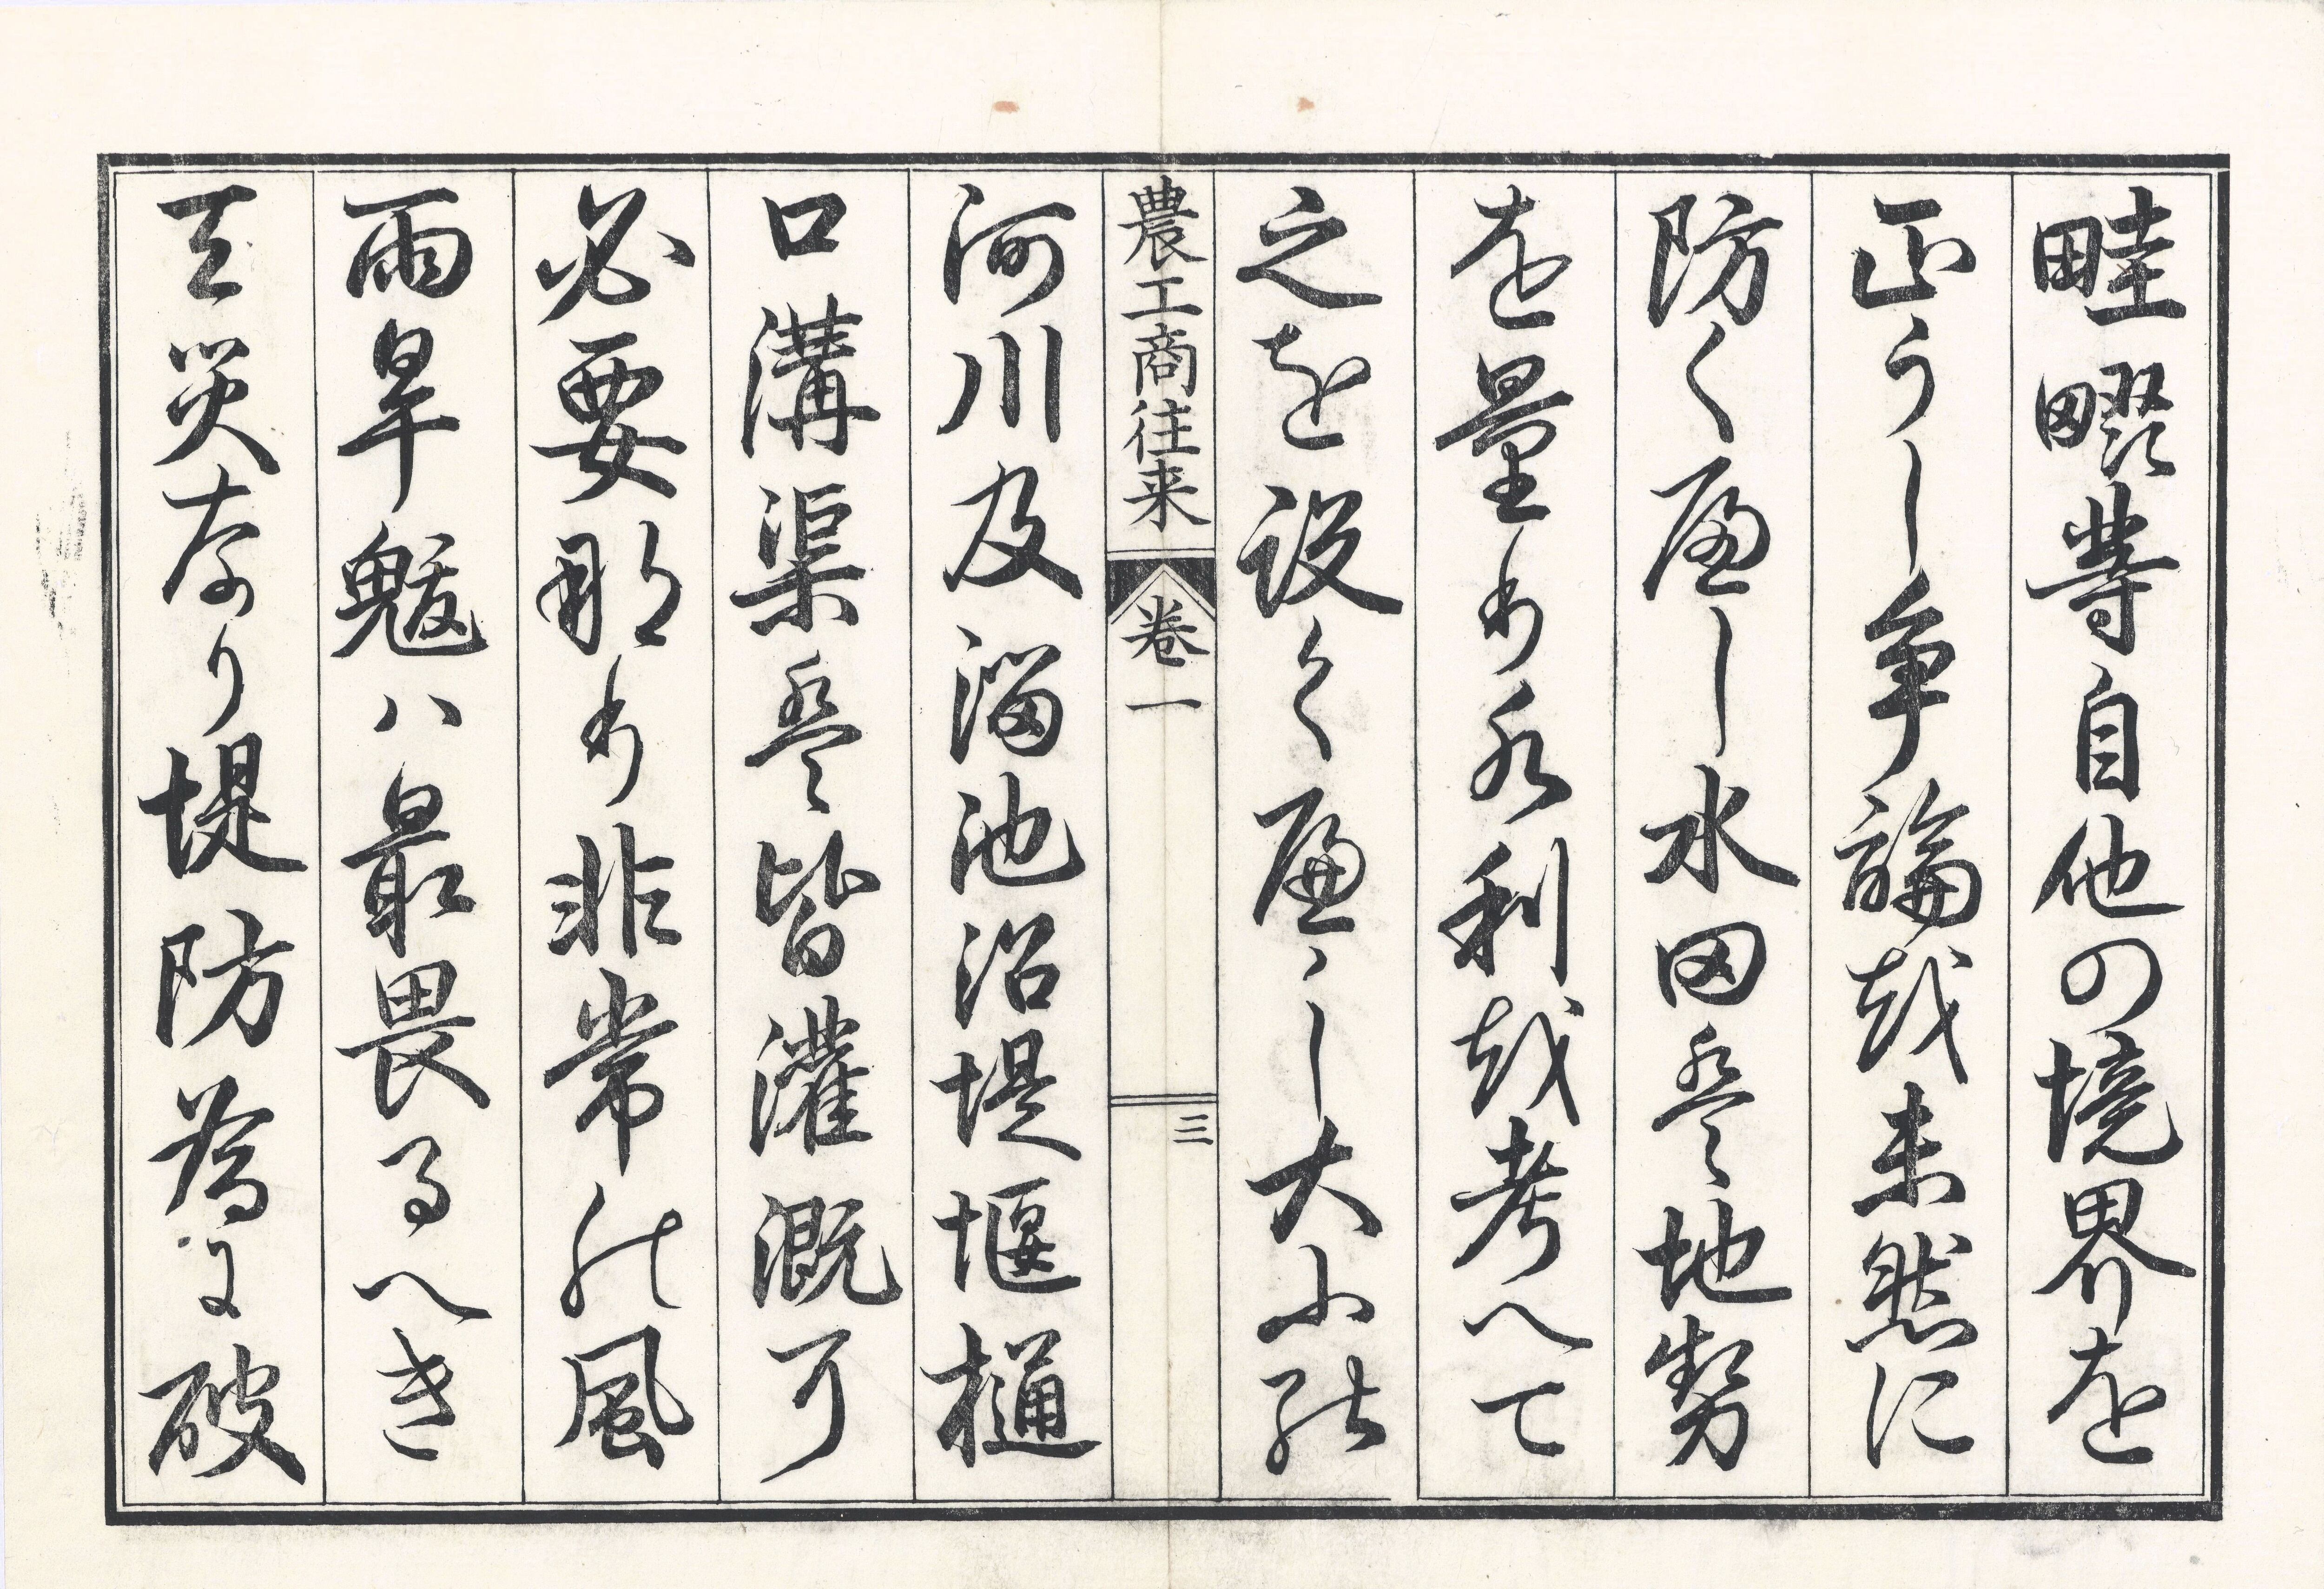 畦畷等自他の境界を
正うし争論を未然に
防くへし水田并地勢
を量り水利を考へて
之を設くへし大小の
農工商往来 巻一 三
河川及溜池沼堤堰樋
口溝渠并皆灌漑に
必要なり非常の風
雨旱魃ハ最畏るへき
天災なり堤防為に破